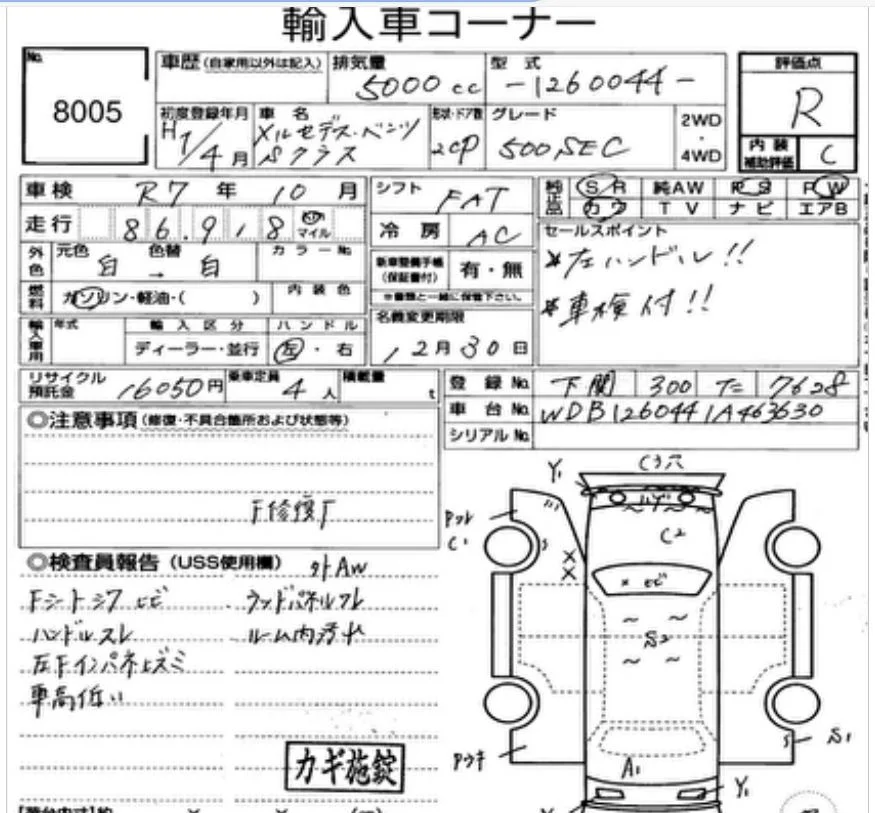 輸入車コーナー
No.
8005
車歴 (自家用以外は記入)
排気量
5000 cc
型式
-1260044-
評価点
R
初度登録年月
H7/4月
車名
メルセデス・ベンツ
Sクラス
形状・ドア数
2CP
グレード
500SEC
2WD
・
4WD
内装
補助評価
C
車検 R7年 10月
シフト FAT
純正品
S/R 純AW P S P W
カワ TV ナビ エアB
走行 86.918 マイル
冷房 AC
セールスポイント
*左ハンドル!!
*車検付!!
外色
元色 色替
白 → 白
カラーNo.
新車整備手帳
(保証書付)
有・無
※書類と一緒に保管下さい。
燃料
ガソリン・軽油・( )
内装色
名義変更期限
12月30日
輸入車用
年式
輸入区分
ディーラー・並行
ハンドル
左・右
リサイクル
預託金
16050円
乗車定員
4人
積載量
t
登録No. 下関 300 7628
車台No. WDB1260441A463630
シリアルNo.
◎注意事項 (修復・不具合箇所および状態等)
F修復F
◎検査員報告 (USS使用欄)
外AW
Fシートシワ ヒビ
ラッドパネルズレ
ハンドルスレ
ルーム内汚れ
左Fインパネヒズミ
車高低い
カギ施錠
Y1
C3穴
ハゲ
C2
C1
ヒビ
S2
S1
A1
Y1